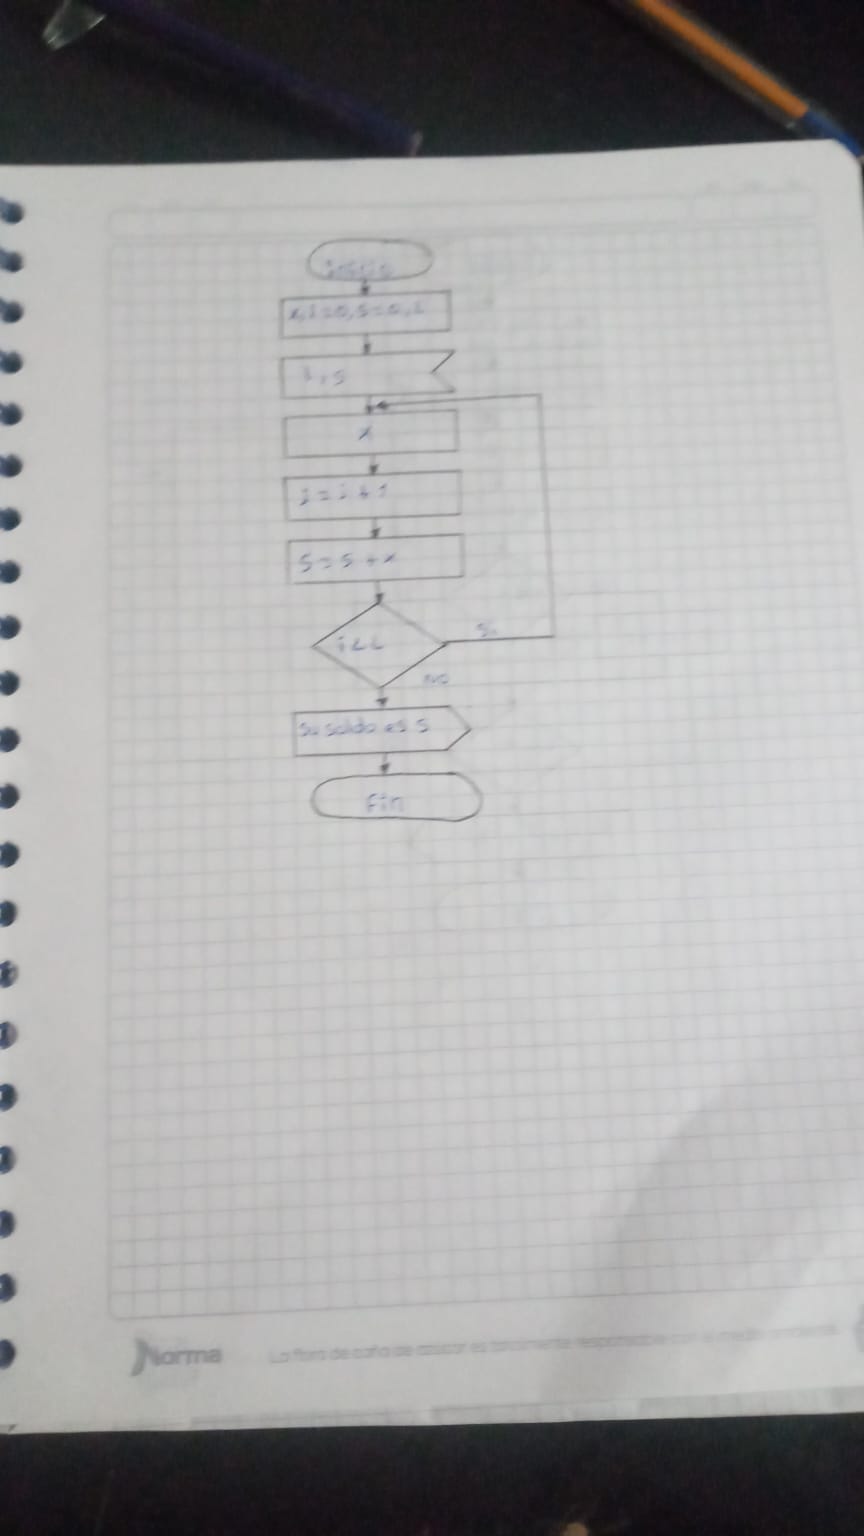 inicio
x, i=0, s=0, L
L, s
x
i = i + 1
s = s + x
i < L
Si
NO
Su saldo es S
Fin
Norma
La fibra de caña de azúcar es totalmente responsable con el medio ambiente